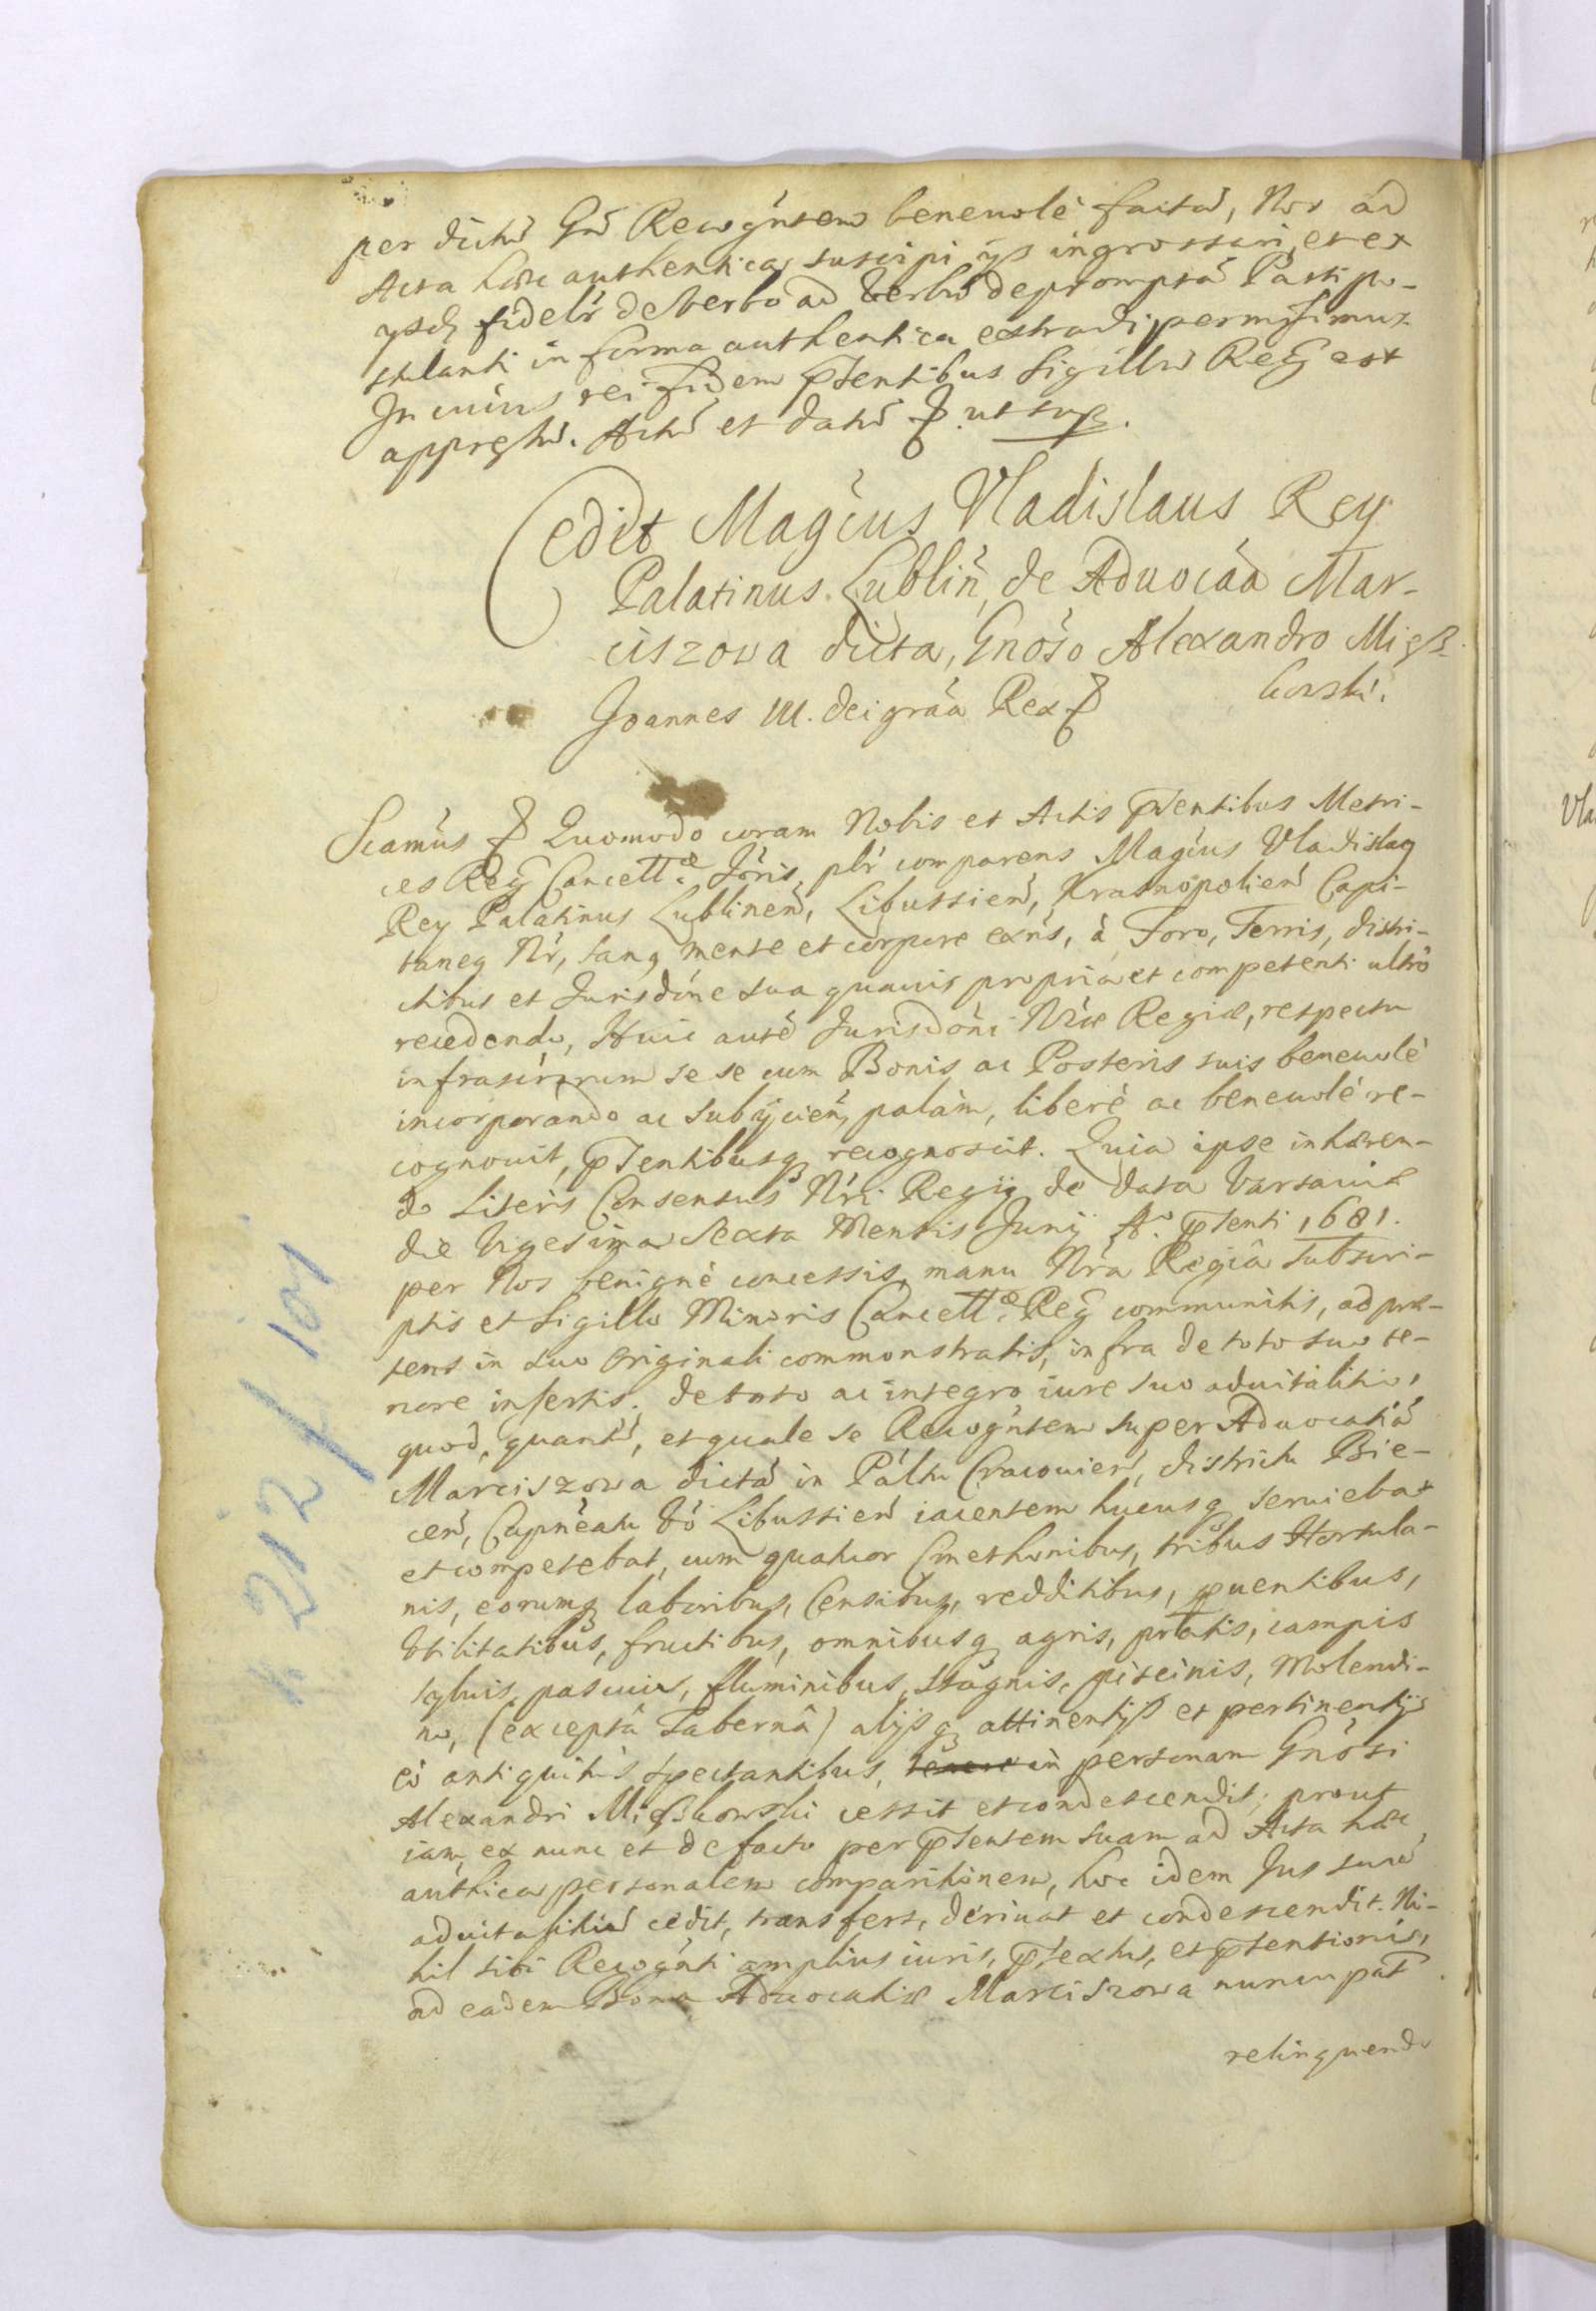 per dictũ Gñ Recogńtem beneuolè factã, Nos ad
Acta hæc authentica, suscipi ijs ingrossari, et ex
ijsdẽ fidelr̃ de Verbo ad Verbũ depromptã Parti po-
stulanti in forma authentica extradi permisimus
In cuius rei fidem pñtentibus Sigillũ Reg̃ est
appressũ. Actũ et datũ ut sup.
Cedit Magćus Vladislaus Rey
Palatinus Lubliñ, de Aduocãa Mar-
ciszowa dicta, Gnóso Alexandro Mięß-
kowski.
Joannes III. dei grãa Rex
Scamús Quomodo coram Nobis et Actis pñtentibus Metri-
ces Reg̃ Cancellæ. Jóris, plr̃ comparens Magćus Vladislaq
Rey Palatinus Lublineñ, Libussieñ, Krasnopolieñ Capi-
taneq Nr̃, sanq mente et corpore exñs, à Foro, Terris, distri-
ctibus et Jurisdóne sua quauis propria et competenti ultrò
recedendo, Huic autẽ Jurisdóni Nr̃æ Regiæ, respectu
infrascr̃orum se se cum Bonis ac Posteris suis beneuolè
incorporando ac subijcieñ, palàm, liberè ac beneuolè re-
cognouit, pñtentibusq recognoscit. Quia ipse inhæren-
do Literis Consensus Nr̃i Regij de data Varsauiæ
die Vigesima Sexta Mensis Junij Aº. pñtenti 1681.
per Nos benignè concessis, manu Nr̃a Regiâ subscri-
ptis et Sigillo Minoris Cancellæ. Reg̃ communitis, ad præ-
sens in suo Originali commonstratis, infra de toto suo te-
nore insertis. de toto ac integro iure suo aduitalitio,
quod, quantũ, et quale se Recogńtem super Aduocatiã
Marciszowa dictã in Páltu Cracouieñ, districtu Bie-
ceñ, Capnéatu Vó Libussieñ iacentem húcusq seruiebat
et competebat, cum quatuor Cmethonibus, tribus Hortula-
nis, eorumq laboribus, Censibus, redditibus, puentibus,
Vtilitatibus, fructibus, omnibusq agris, pratis, campis
syluis, pascuis, fluminibus, stagnis, piscinis, Molendi-
no, (exceptâ Tabernâ) alijsq attinentijs et pertinentijs
eò antiquitùs spectantibus, in personam Gnósi
Alexandri Mięßkowski cessit et condescendit; prout
iam ex nunc et de facto per pñtentem suam ad Acta hæc
authica personalem comparitionem, hoc idem Jus suũ
aduitalitiũ cedit, transfert, deriuat et condescendit. Ni-
hil sibi Recogńti amplius iuris, pñtextus, et pñtensionis,
ad eadem Bona Aduocatiæ Marciszowa nuncupat
relinquendo